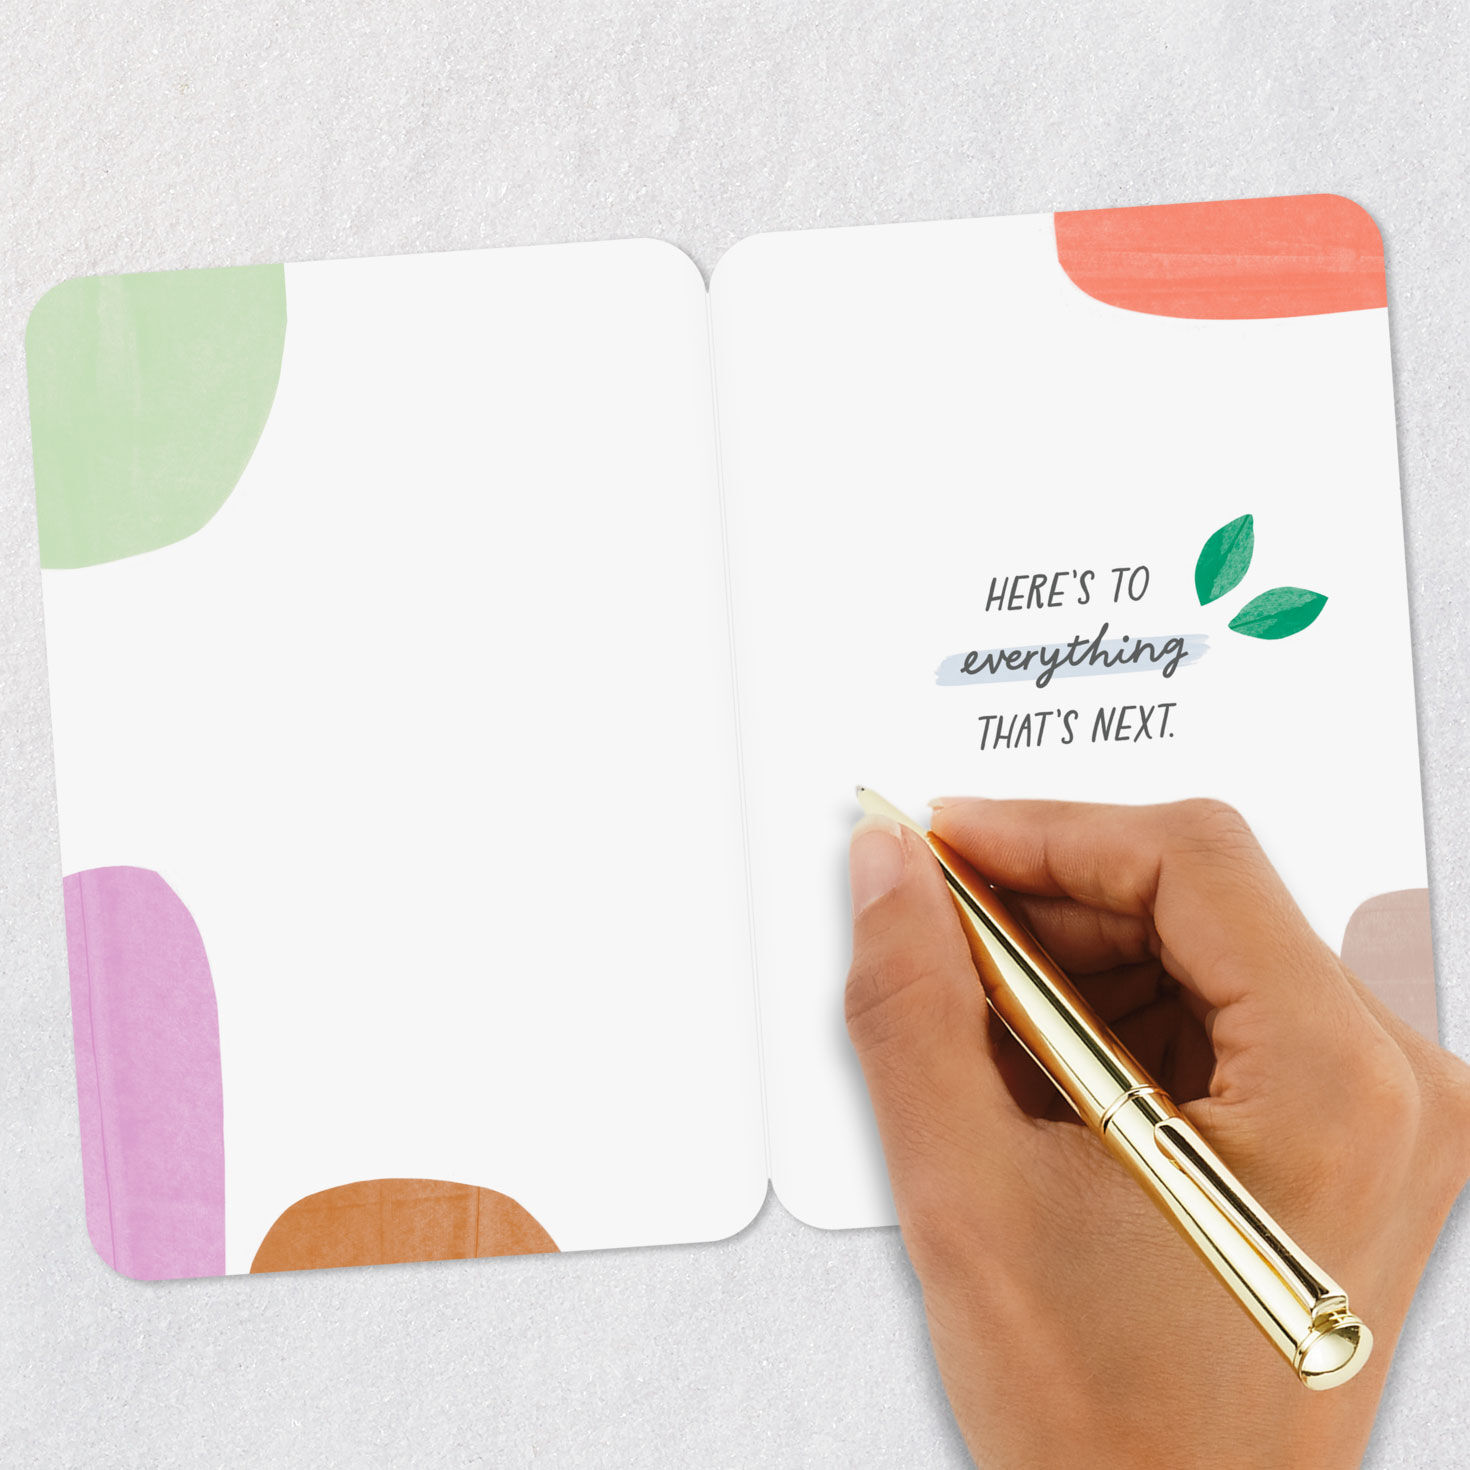 HERE'S TO
everything
THAT'S NEXT.